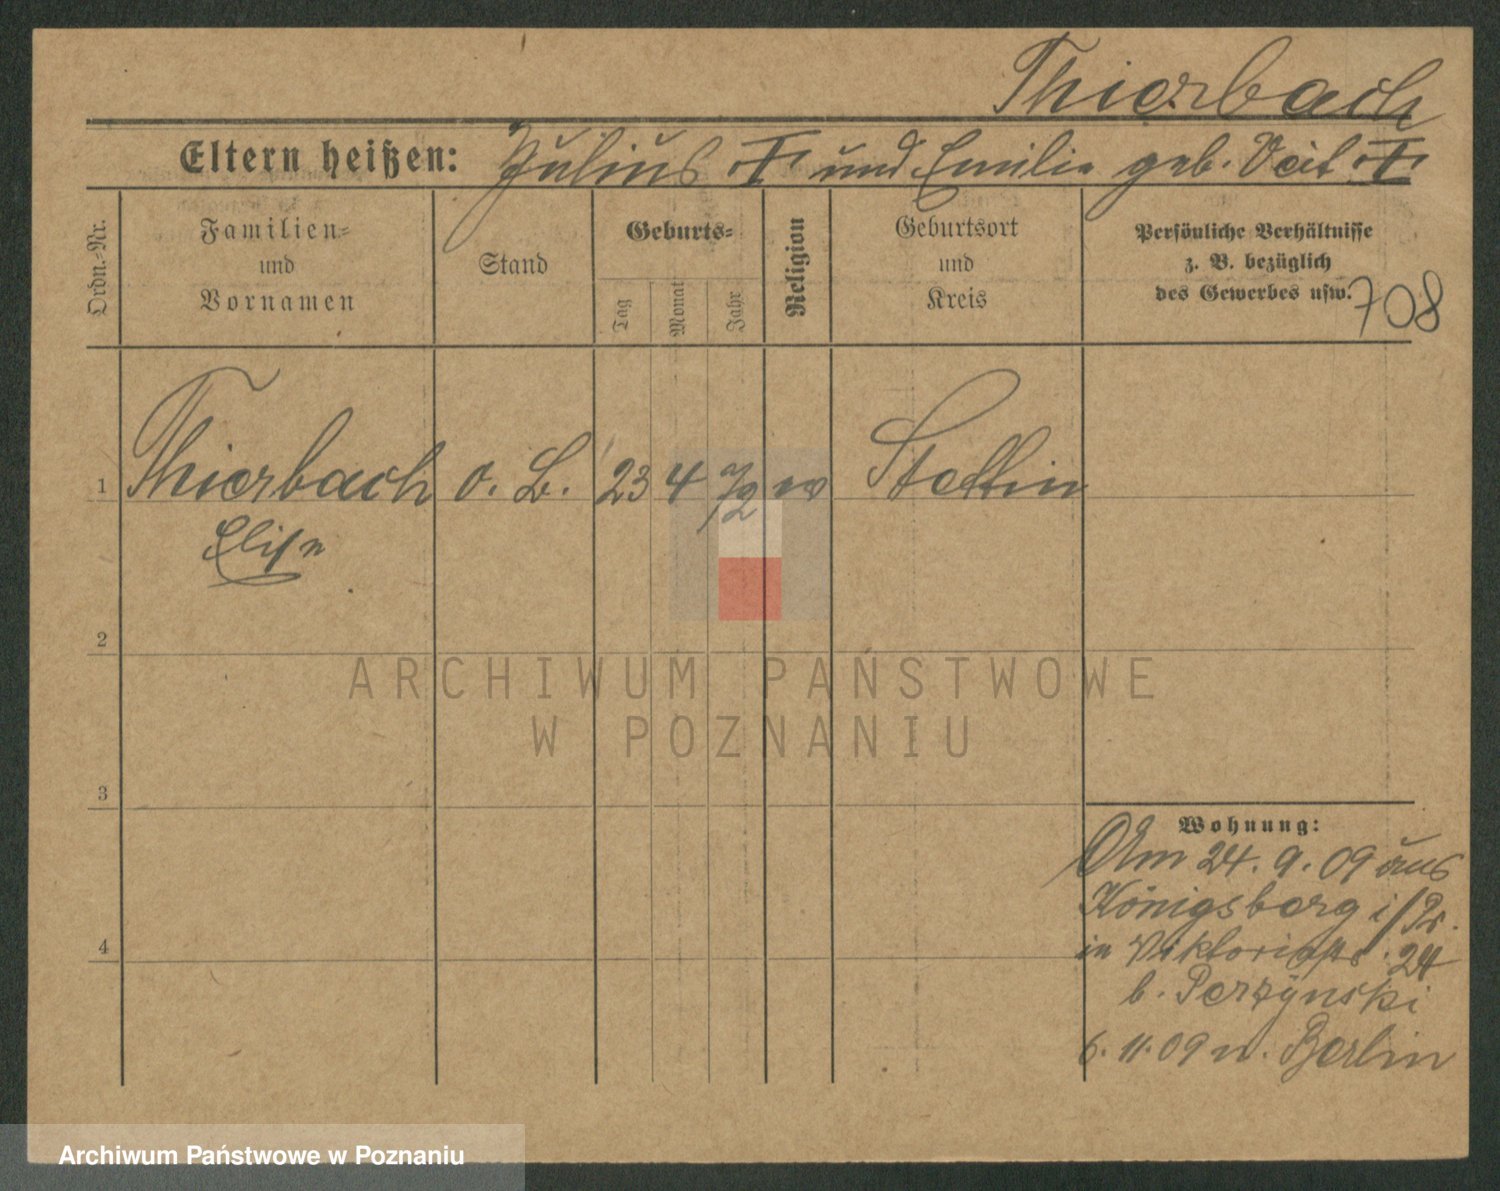 Thierbach
Eltern heißen: Julius † und Emilie geb. Veit †
Ordn.-Nr.
Familien-
und
Vornamen
Stand
Geburts-
Tag
Monat
Jahr
Religion
Geburtsort
und
Kreis
Persönliche Verhältnisse
z. B. bezüglich
des Gewerbes usw.
708
1 Thierbach o. B. 23 4 72 Stettin
Elise
2
ARCHIWUM PAŃSTWOWE
W POZNANIU
3
Wohnung:
Am 24. 9. 09 aus
Königsberg i/Pr.
4
in Viktoriastr. 24
b. Perzynski
6. 11. 09 n. Berlin
Archiwum Państwowe w Poznaniu